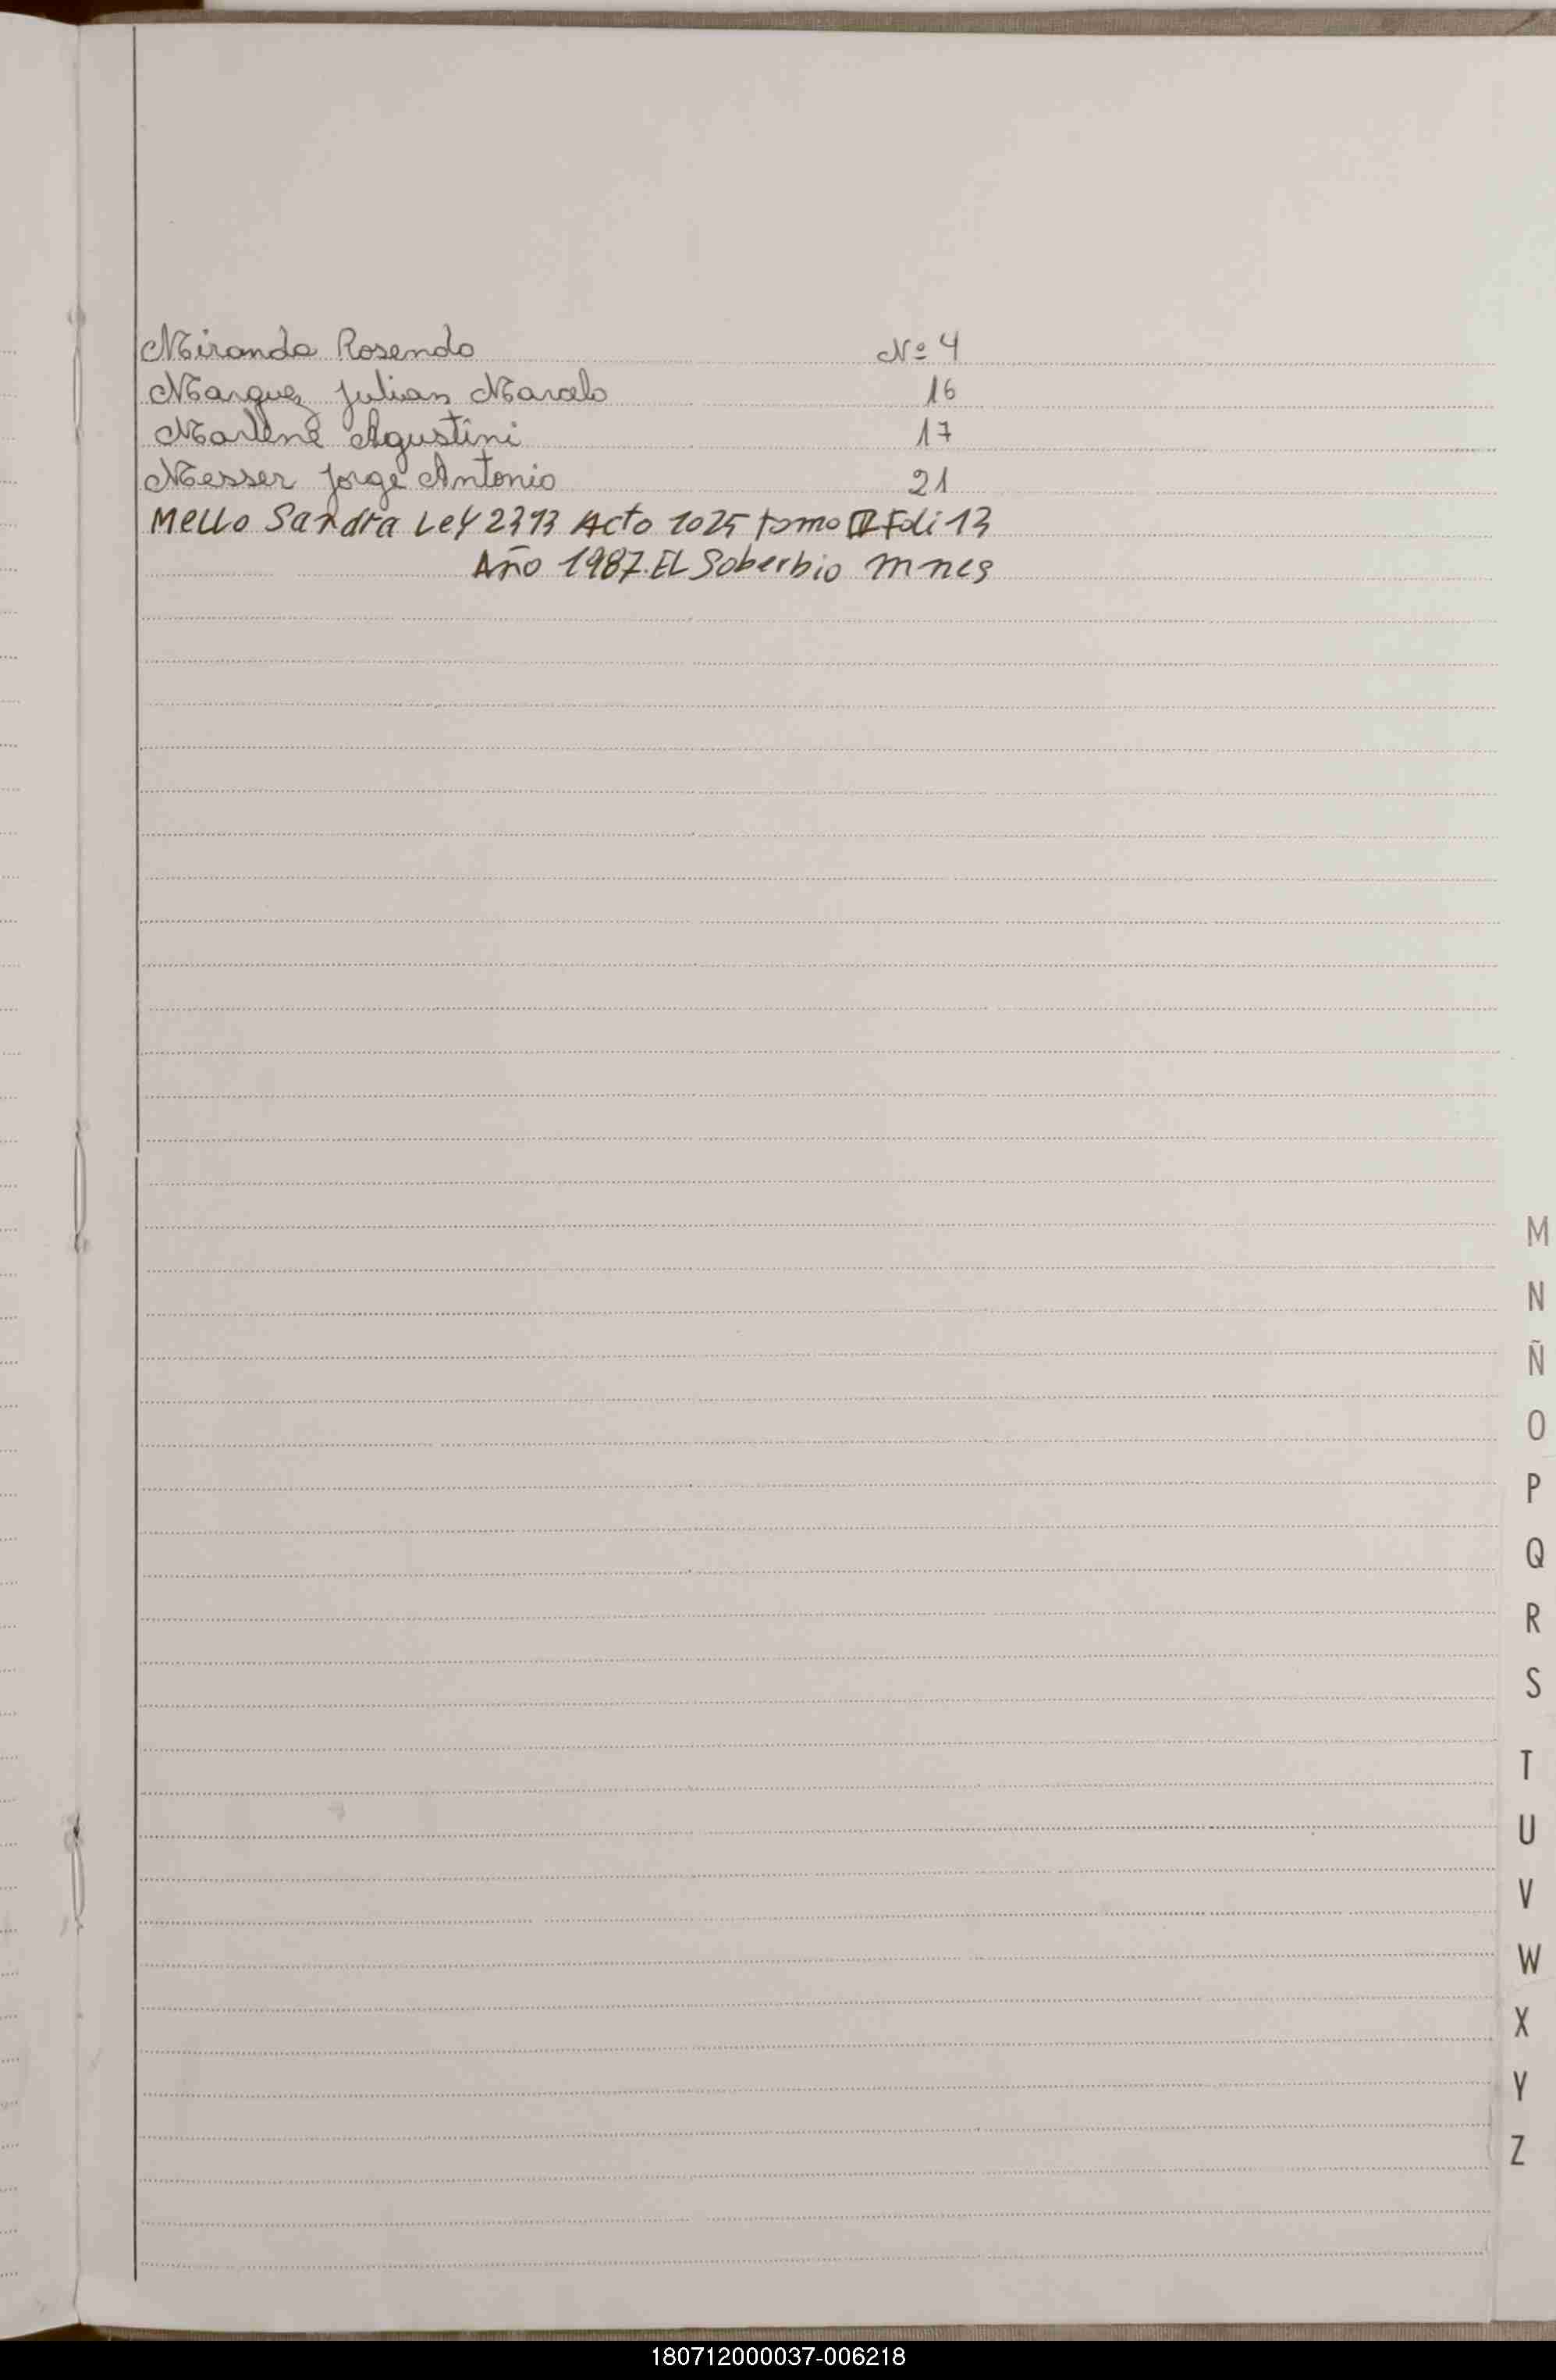 Miranda Rosendo Nº 4
Marquez Julian Marcelo 16
Marlene Agustini 17
Messer Jorge Antonio 21
Mello Sandra Ley 2393 Acto 1025 tomo Foli 13
Año 1987. EL Soberbio mnes
M
N
Ñ
O
P
Q
R
S
T
U
V
W
X
Y
Z
180712000037-006218